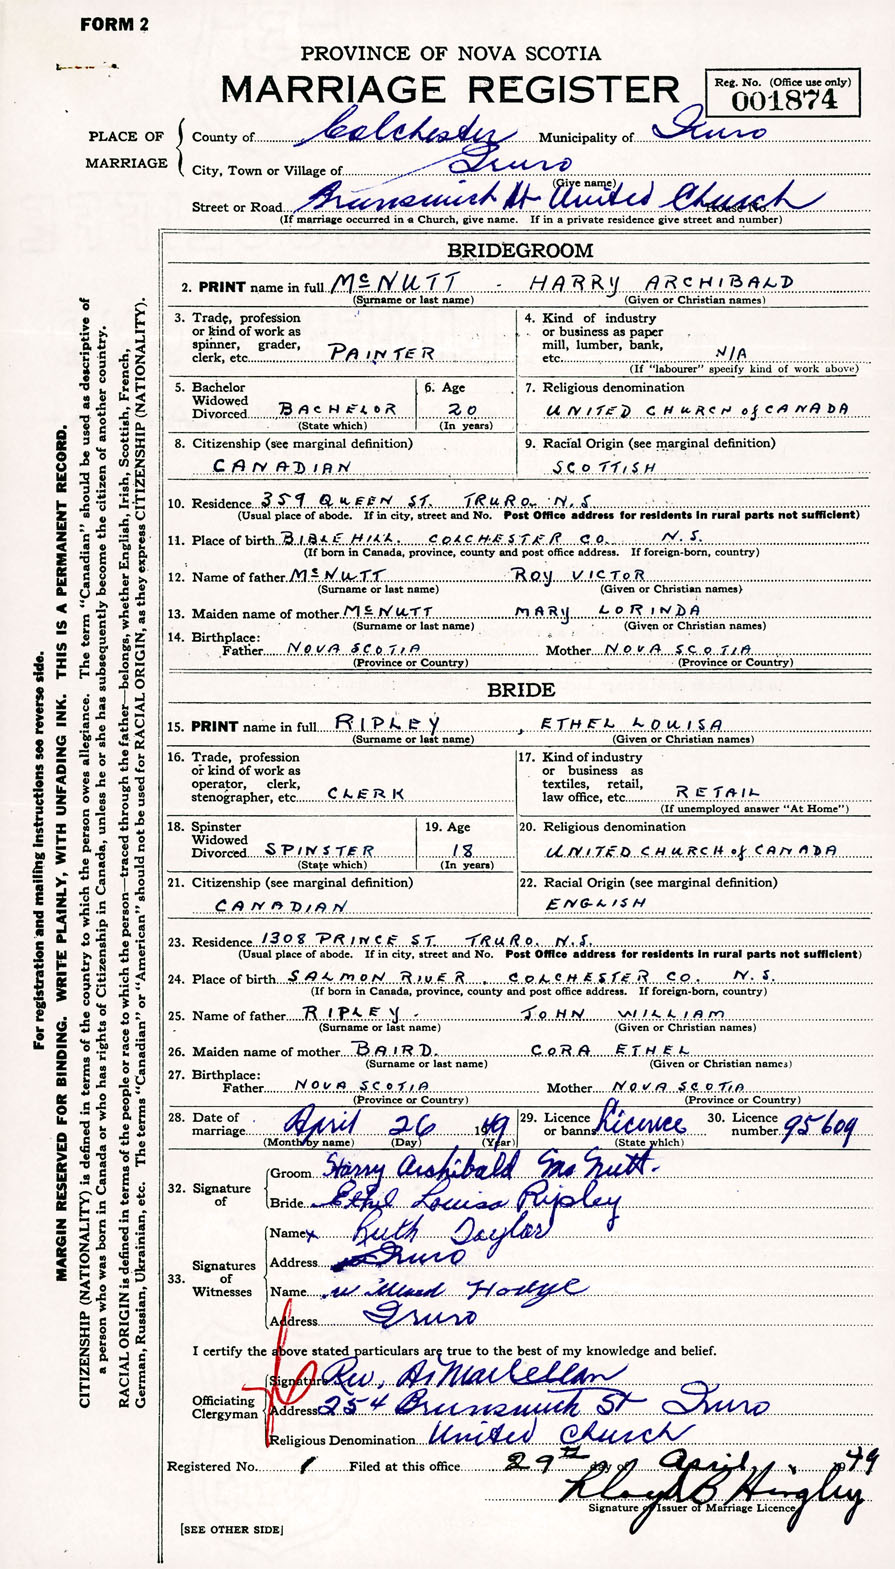 FORM 2
PROVINCE OF NOVA SCOTIA
MARRIAGE REGISTER
Reg. No. (Office use only)
001874
PLACE OF MARRIAGE
County of Colchester Municipality of Truro
City, Town or Village of Truro
(Give name)
Street or Road Brunswick St United Church House No.
(If marriage occurred in a Church, give name. If in a private residence give street and number)
BRIDEGROOM
2. PRINT name in full McNUTT - HARRY ARCHIBALD
(Surname or last name) (Given or Christian names)
3. Trade, profession or kind of work as spinner, grader, clerk, etc. PAINTER
4. Kind of industry or business as paper mill, lumber, bank, etc. N/A
(If "labourer" specify kind of work above)
5. Bachelor Widowed Divorced BACHELOR
(State which)
6. Age 20
(In years)
7. Religious denomination
UNITED CHURCH of CANADA
8. Citizenship (see marginal definition)
CANADIAN
9. Racial Origin (see marginal definition)
SCOTTISH
10. Residence 359 QUEEN ST. TRURO. N.S.
(Usual place of abode. If in city, street and No. Post Office address for residents in rural parts not sufficient)
11. Place of birth BIBLE HILL. COLCHESTER CO. N.S.
(If born in Canada, province, county and post office address. If foreign-born, country)
12. Name of father McNUTT ROY VICTOR
(Surname or last name) (Given or Christian names)
13. Maiden name of mother McNUTT MARY LORINDA
(Surname or last name) (Given or Christian names)
14. Birthplace:
Father NOVA SCOTIA Mother NOVA SCOTIA
(Province or Country) (Province or Country)
BRIDE
15. PRINT name in full RIPLEY, ETHEL LOUISA
(Surname or last name) (Given or Christian names)
16. Trade, profession or kind of work as operator, clerk, stenographer, etc. CLERK
17. Kind of industry or business as textiles, retail, law office, etc. RETAIL
(If unemployed answer "At Home")
18. Spinster Widowed Divorced SPINSTER
(State which)
19. Age 18
(In years)
20. Religious denomination
UNITED CHURCH of CANADA
21. Citizenship (see marginal definition)
CANADIAN
22. Racial Origin (see marginal definition)
ENGLISH
23. Residence 1308 PRINCE ST. TRURO. N.S.
(Usual place of abode. If in city, street and No. Post Office address for residents in rural parts not sufficient)
24. Place of birth SALMON RIVER, COLCHESTER CO. N.S.
(If born in Canada, province, county and post office address. If foreign-born, country)
25. Name of father RIPLEY. JOHN WILLIAM
(Surname or last name) (Given or Christian names)
26. Maiden name of mother BAIRD. CORA ETHEL
(Surname or last name) (Given or Christian names)
27. Birthplace:
Father NOVA SCOTIA Mother NOVA SCOTIA
(Province or Country) (Province or Country)
28. Date of marriage April 26 1949
(Month by name) (Day) (Year)
29. Licence or banns Licence
(State which)
30. Licence number 95609
32. Signature of
Groom Harry Archibald McNutt.
Bride Ethel Louisa Ripley
33. Signatures of Witnesses
Name x Ruth Taylor
Address Truro
Name Willard Hodge
Address Truro
I certify the above stated particulars are true to the best of my knowledge and belief.
Officiating Clergyman
Signature Rev. A. MacLellan
Address 254 Brunswick St Truro
Religious Denomination United Church
Registered No. 1 Filed at this office 29th day of April 1949
Lloyd B Hingley
Signature of Issuer of Marriage Licence
[SEE OTHER SIDE]
For registration and mailing instructions see reverse side.
MARGIN RESERVED FOR BINDING. WRITE PLAINLY, WITH UNFADING INK. THIS IS A PERMANENT RECORD.
CITIZENSHIP (NATIONALITY) is defined in terms of the country to which the person owes allegiance. The term "Canadian" should be used as descriptive of
a person who was born in Canada or who has rights of Citizenship in Canada, unless he or she has subsequently become the citizen of another country.
RACIAL ORIGIN is defined in terms of the people or race to which the person—traced through the father—belongs, whether English, Irish, Scottish, French,
German, Russian, Ukrainian, etc. The terms "Canadian" or "American" should not be used for RACIAL ORIGIN, as they express CITIZENSHIP (NATIONALITY).